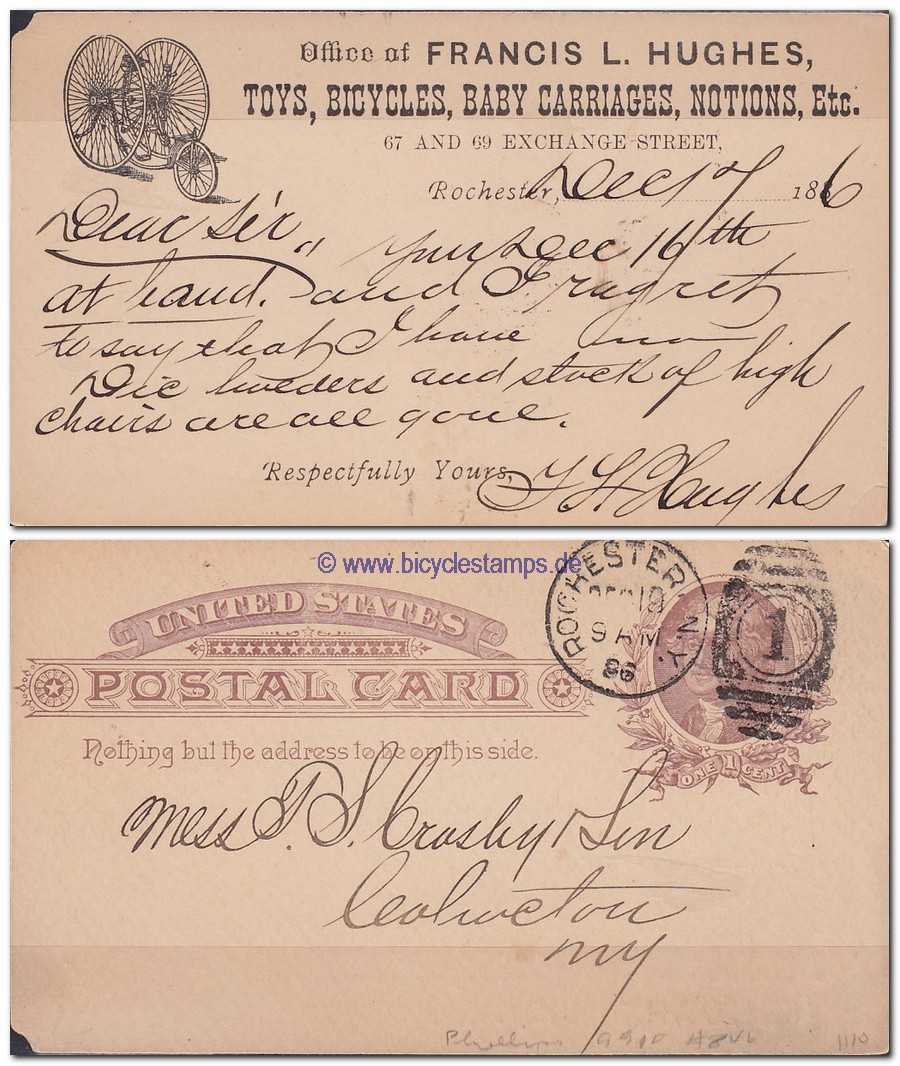 Office of FRANCIS L. HUGHES,
TOYS, BICYCLES, BABY CARRIAGES, NOTIONS, Etc.
67 AND 69 EXCHANGE STREET,
Rochester, Dec 17 1886
Dear Sir,, your Dec 16th
at hand. and I regret
to say that I have no
and stock of high
chairs are all gone.
Respectfully Yours, F L Hughes
© www.bicyclestamps.de
UNITED STATES
POSTAL CARD
Nothing but the address to be on this side.
ROCHESTER N.Y.
DEC 18
9 AM
86
1
ONE 1 CENT
Mess P. S. Crosby & Son
NY
1110